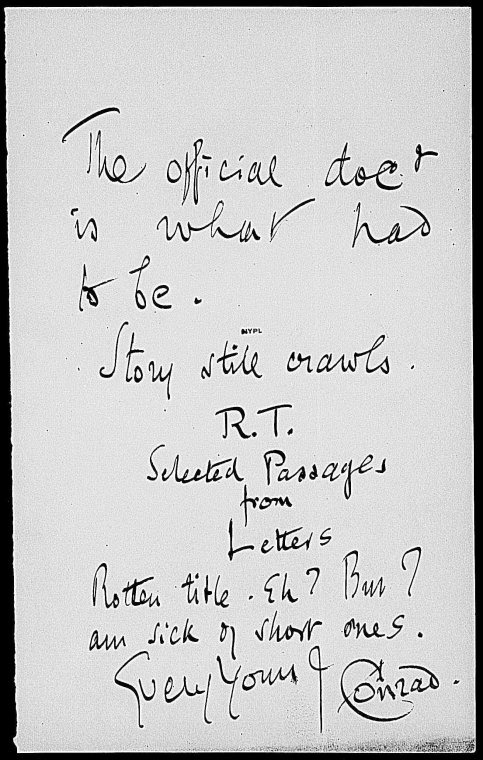 The official doct
is what had
to be.
NYPL
Story still crawls.
R.T.
Selected Passages
from
Letters
Rotten title. Eh? But?
am sick of short ones.
Every Yours J Conrad.